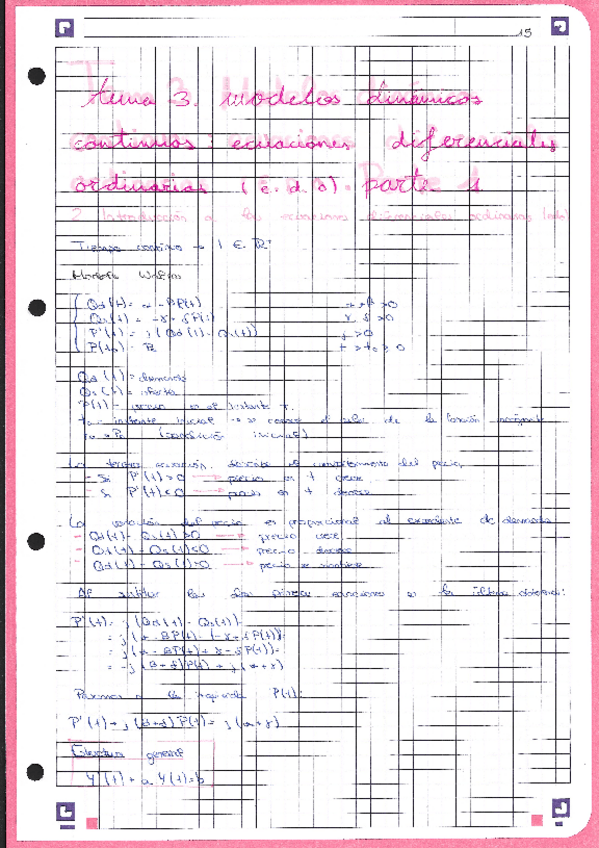 15
Tema 3. Modelos dinámicos
continuos: ecuaciones diferenciales
ordinarias (e.d.o). Parte 1
2 Introducción a las ecuaciones diferenciales ordinarias (edo)
Tiempo continuo → t ∈ R⁺
Modelo Walras
Qd(t) = α - βP(t) α, β > 0
Qs(t) = -γ + δP(t) γ, δ > 0
P'(t) = j (Qd(t) - Qs(t)) j > 0
P(t₀) = P₀ t > t₀ ≥ 0
Qd(t) = demanda
Qs(t) = oferta
P(t) = precio en el instante t.
instante inicial conoce el valor de la función
(condición inicial)
La tercera ecuación describe el comportamiento del precio,
- Si P'(t) > 0 → precio en t crece
- Si P'(t) < 0 → precio en t decrece
La variación del precio es proporcional al excedente de demanda
- Qd(t) - Qs(t) > 0 → precio crece
- Qd(t) - Qs(t) < 0 → precio decrece
- Qd(t) - Qs(t) = 0 → precio se mantiene
Al sustituir las dos primeras ecuaciones en la última obtenemos:
P'(t) = j (Qd(t) - Qs(t)) =
= j (α - βP(t) - (-γ + δP(t))) =
= j (α - βP(t) + γ - δP(t)) =
= -j (β + δ)P(t) + j (α + γ)
Pasamos a la izquierda P(t):
P'(t) + j (β + δ) P(t) = j (α + γ)
Estructura general
y'(t) + a y(t) = b